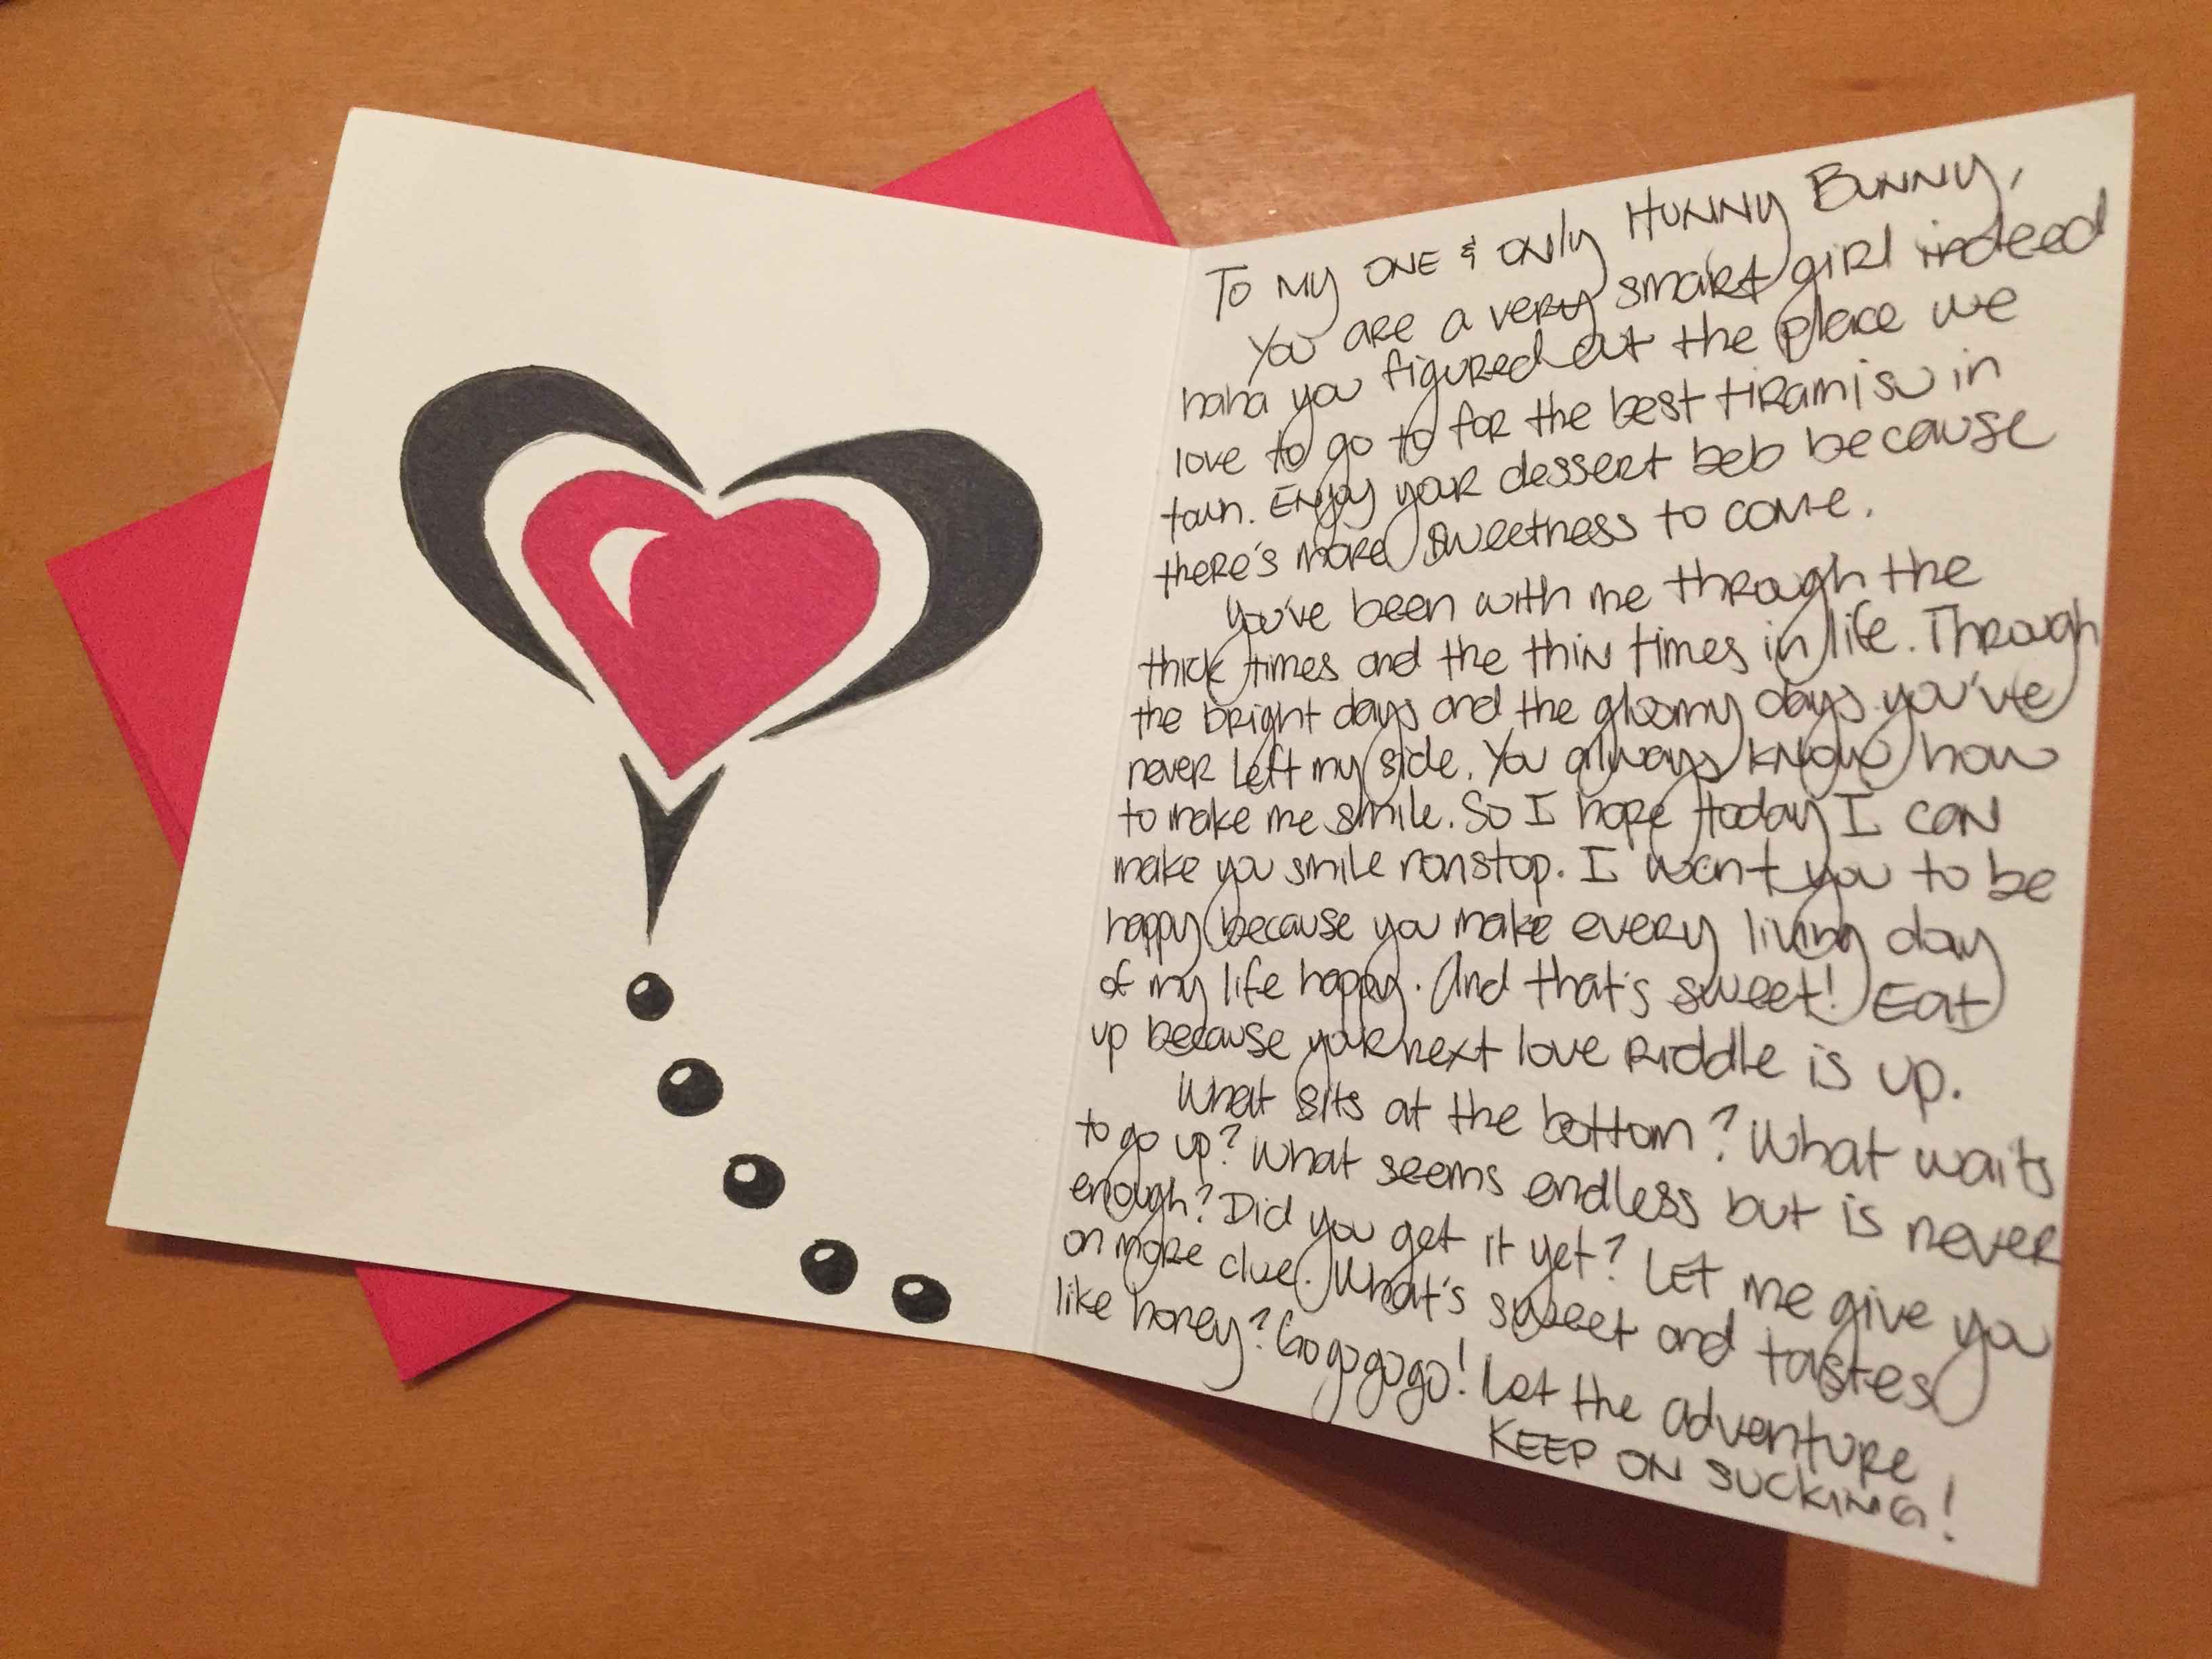 To my one & only Hunny Bunny,
You are a very smart girl indeed
haha you figured out the place we
love to go to for the best tiramisu in
town. Enjoy your dessert beb because
there's more sweetness to come.
You've been with me through the
thick times and the thin times in life. Through
the bright days and the gloomy days you've
never left my side. You always know how
to make me smile. So I hope today I can
make you smile nonstop. I want you to be
happy because you make every living day
of my life happy. And that's sweet! Eat
up because your next love riddle is up.
What sits at the bottom? What waits
to go up? What seems endless but is never
enough? Did you get it yet? Let me give you
on more clue. What's sweet and tastes
like honey? Go go go go! Let the adventure
KEEP ON SUCKING!